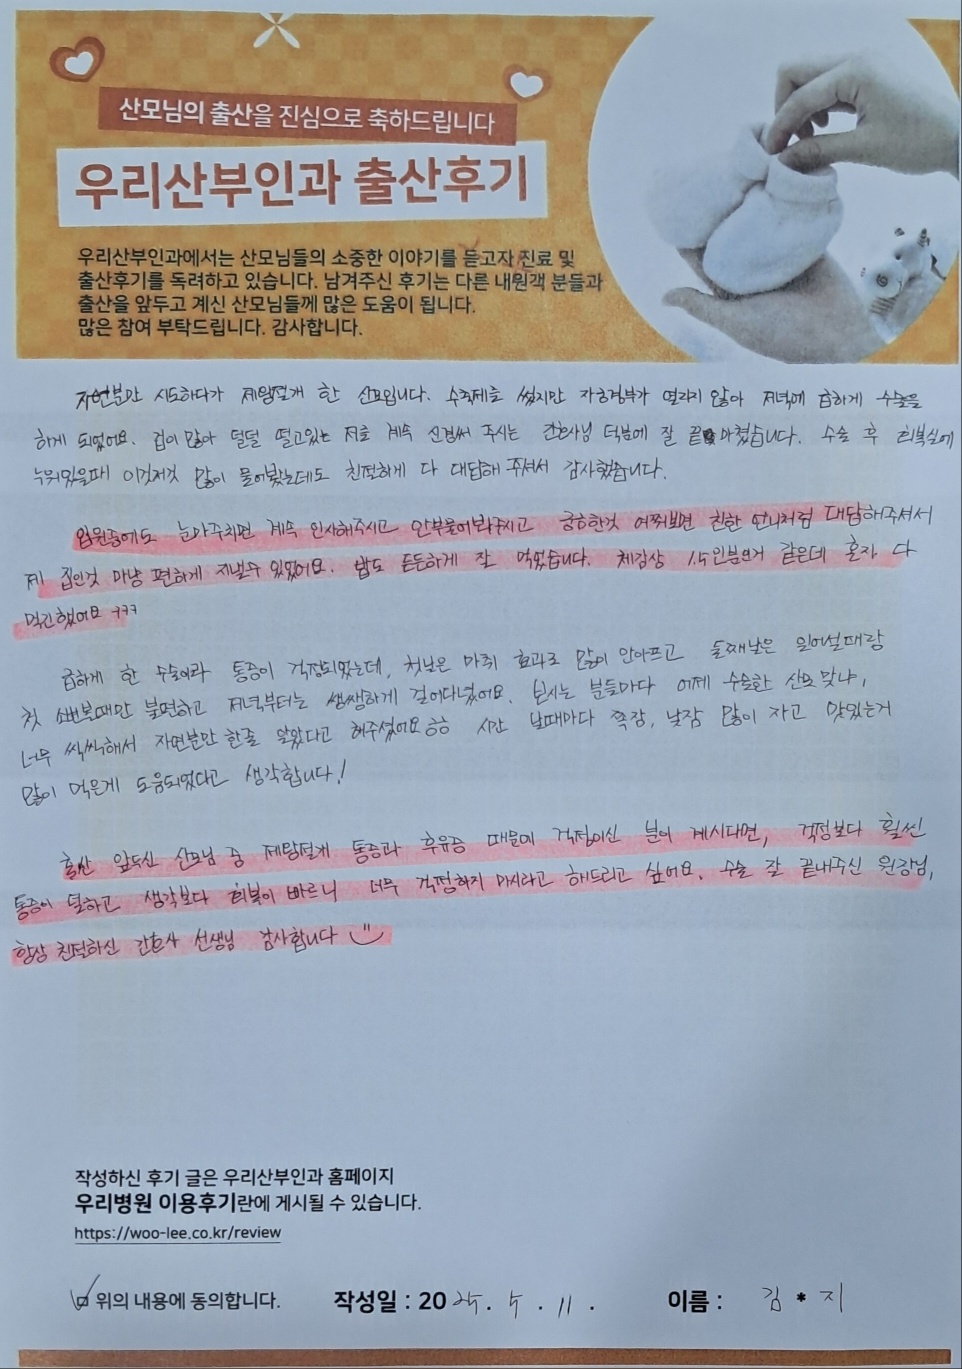 산모님의 출산을 진심으로 축하드립니다
우리산부인과 출산후기
우리산부인과에서는 산모님들의 소중한 이야기를 듣고자 진료 및
출산후기를 독려하고 있습니다. 남겨주신 후기는 다른 내원객 분들과
출산을 앞두고 계신 산모님들께 많은 도움이 됩니다.
많은 참여 부탁드립니다. 감사합니다.
자연분만 시도하다가 제왕절개 한 산모입니다. 수축제를 썼지만 자궁경부가 열리지 않아 저녁에 급하게 수술을
하게 되었어요. 겁이 많아 덜덜 떨고있는 저를 계속 신경써 주시는 간호사님 덕분에 잘 끝마쳤습니다. 수술 후 회복실에
누워있을때 이것저것 많이 물어봤는데도 친절하게 다 대답해 주셔서 감사했습니다.
입원중에도 눈마주치면 계속 인사해주시고 안부물어봐주시고 궁금한것 여쭤보면 친한 언니처럼 대답해주셔서
제 집인것 마냥 편하게 지낼수 있었어요. 밥도 든든하게 잘 먹었습니다. 체감상 1.5인분인거 같은데 혼자 다
먹긴했어요 ㅋㅋㅋ
급하게 한 수술이라 통증이 걱정되었는데, 첫날은 마취 효과로 많이 안아프고 둘째날은 일어설때랑
첫 소변볼때만 불편하고 저녁부터는 쌩쌩하게 걸어다녔어요. 보시는 분들마다 어제 수술한 산모 맞냐,
너무 씩씩해서 자연분만 한줄 알았다고 해주셨어요ㅎㅎ 시간 날때마다 쪽잠, 낮잠 많이 자고 맛있는거
많이 먹은게 도움되었다고 생각합니다!
출산 앞두신 산모님 중 제왕절개 통증과 후유증 때문에 걱정이신 분이 계시다면, 걱정보다 훨씬
통증이 덜하고 생각보다 회복이 빠르니 너무 걱정하지 마시라고 해드리고 싶어요. 수술 잘 끝내주신 원장님,
항상 친절하신 간호사 선생님 감사합니다
작성하신 후기 글은 우리산부인과 홈페이지
우리병원 이용후기란에 게시될 수 있습니다.
https://woo-lee.co.kr/review
위의 내용에 동의합니다. 작성일 : 2025. 5. 11. 이름 : 김 * 지